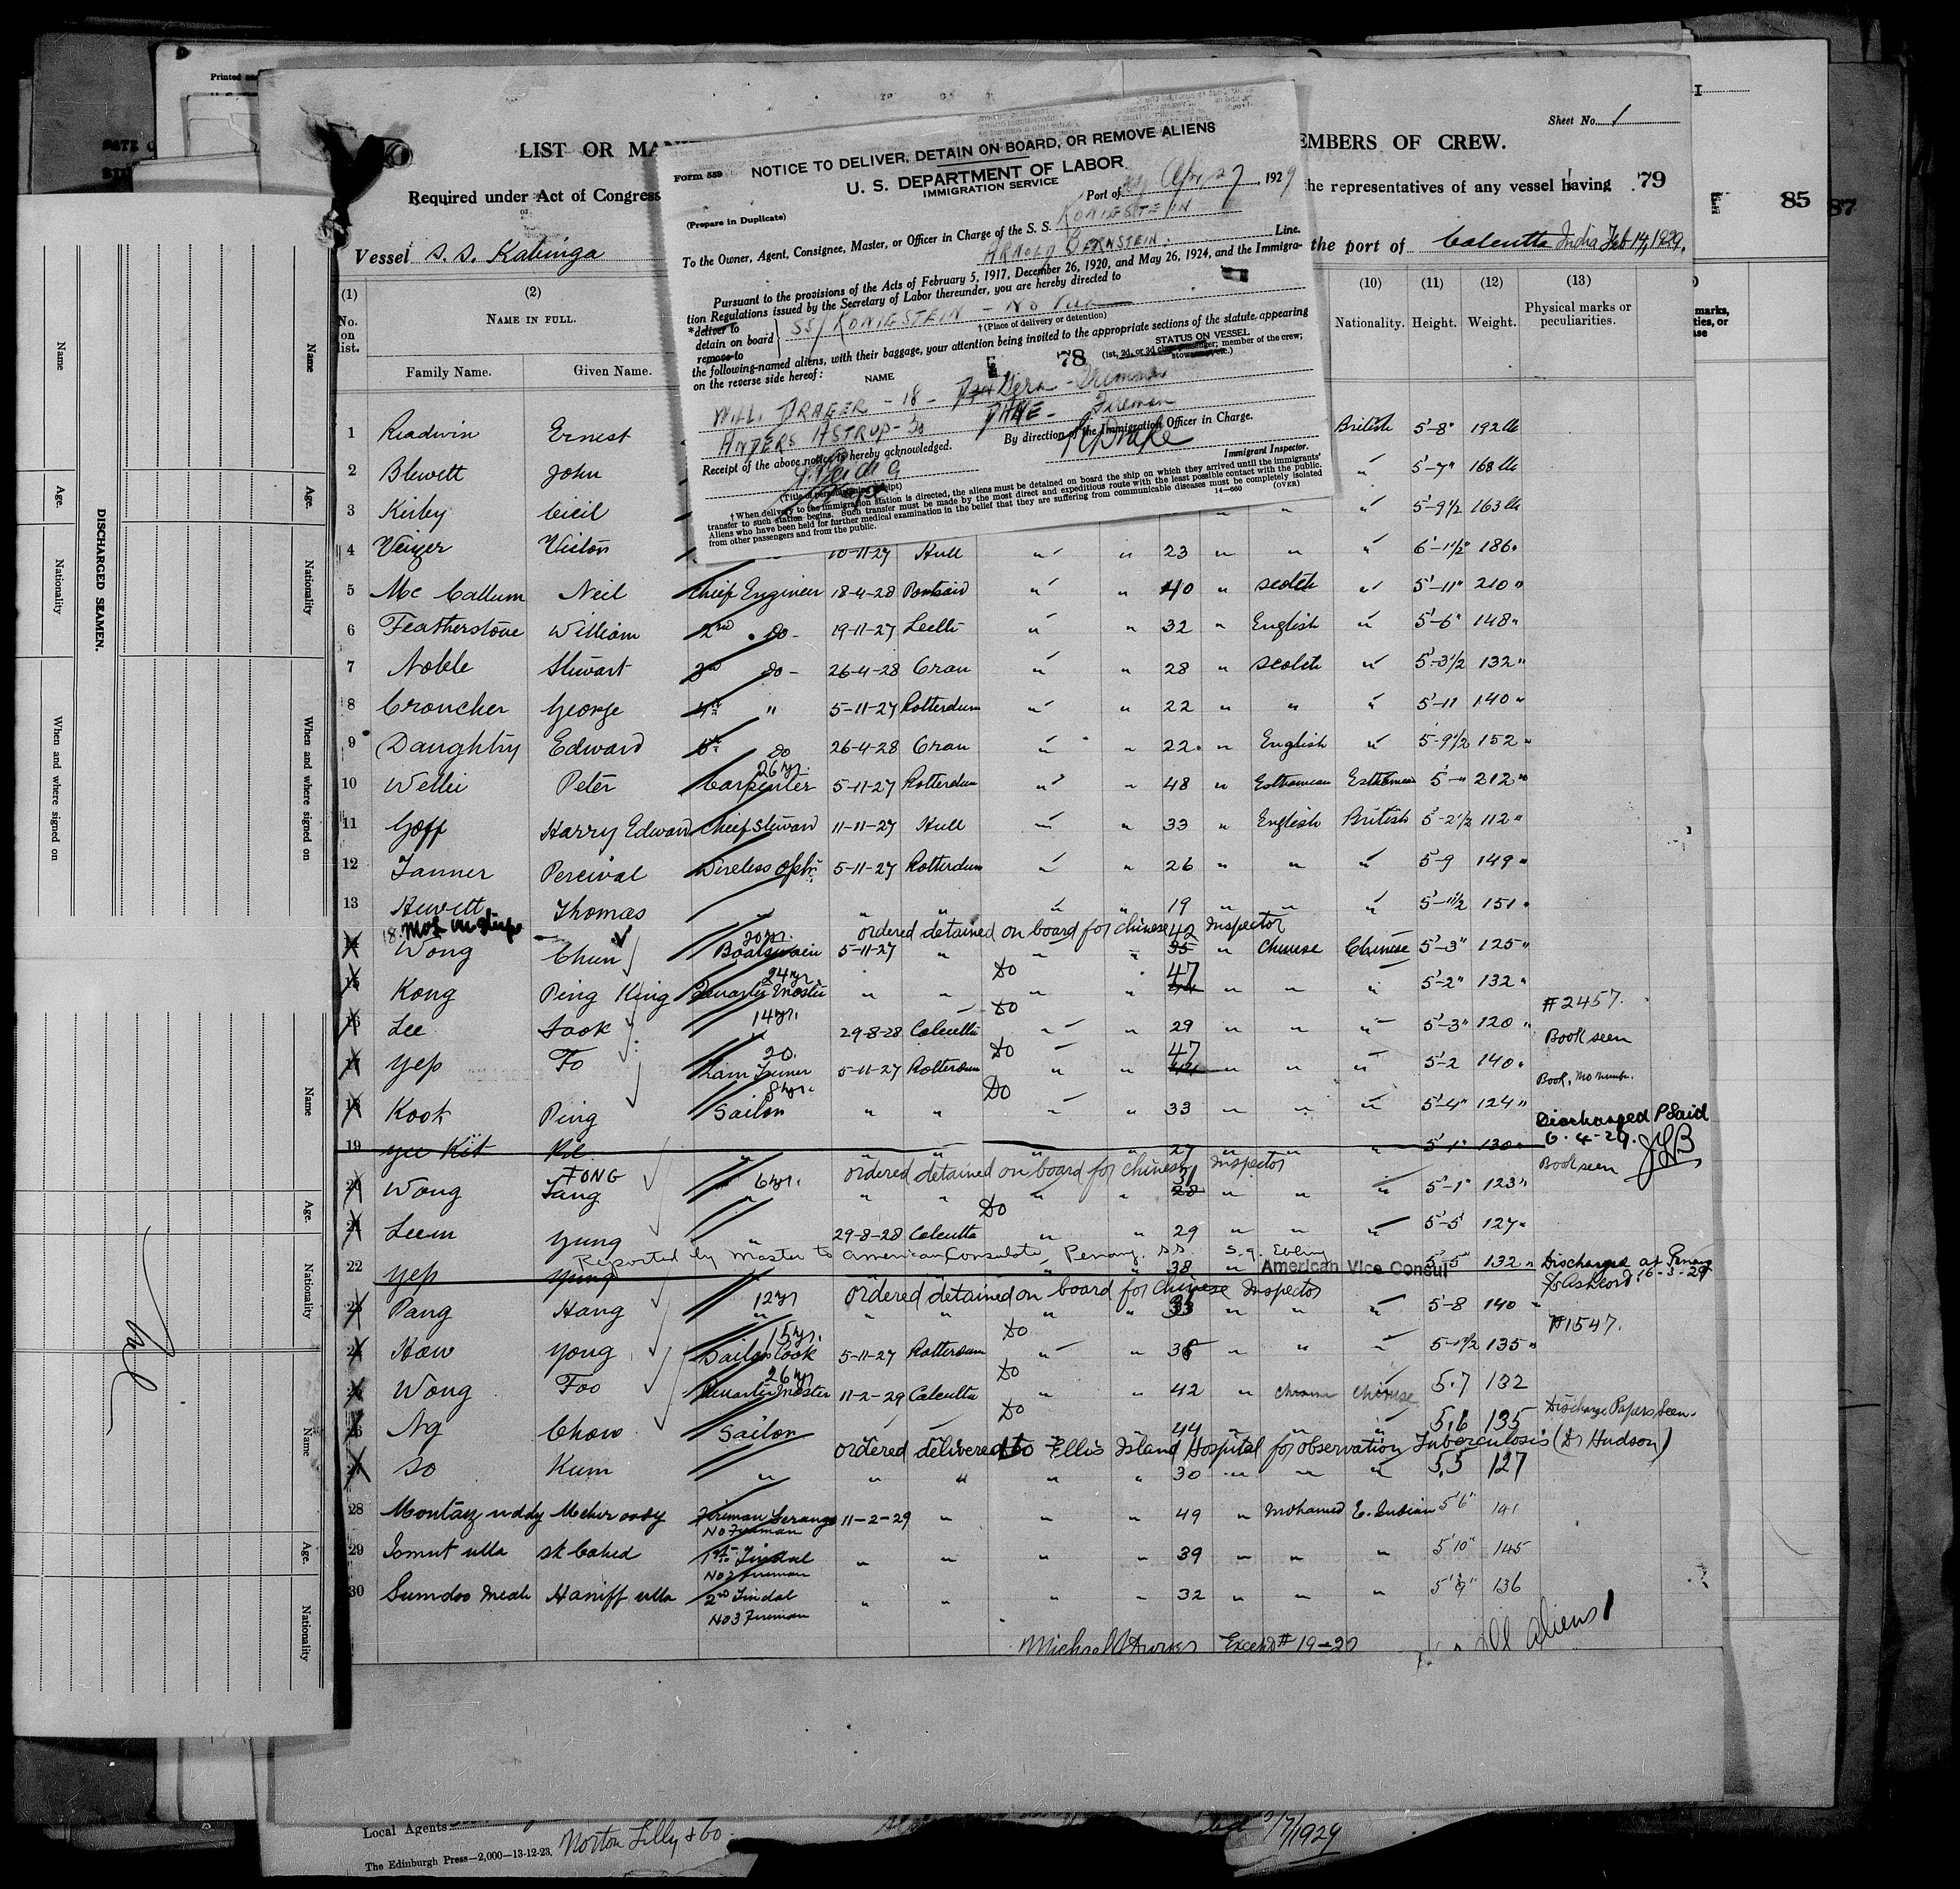 Printed
Sheet No. 1
LIST OR MAN
EMBERS OF CREW.
Required under Act of Congress
the representatives of any vessel having
79
85
87
Vessel S. S. Kalinga
the port of Calcutta India Feb 14, 1929.
Form 559
NOTICE TO DELIVER, DETAIN ON BOARD, OR REMOVE ALIENS
U. S. DEPARTMENT OF LABOR
IMMIGRATION SERVICE
(Prepare in Duplicate)
Port of NY Apr 27, 1929
To the Owner, Agent, Consignee, Master, or Officer in Charge of the S. S. KONIGSTEIN
ARNOLD BERNSTEIN. Line.
Pursuant to the provisions of the Acts of February 5, 1917, December 26, 1920, and May 26, 1924, and the Immigra-
tion Regulations issued by the Secretary of Labor thereunder, you are hereby directed to
*deliver to
detain on board SS/ KONIGSTEIN - No Visa
remove to
†(Place of delivery or detention)
the following-named aliens, with their baggage, your attention being invited to the appropriate sections of the statute appearing
on the reverse side hereof:
NAME
78
STATUS ON VESSEL
(1st, 2d, or 3d class passenger; member of the crew;
stowaway, etc.)
WILL. DRAGER - 18 -
ANDERS ASTRUP - 30 DANE - Fireman
By direction of the Immigration Officer in Charge.
Receipt of the above notice is hereby acknowledged.
Immigrant Inspector.
†When delivery to the immigration station is directed, the aliens must be detained on board the ship on which they arrived until the immigrants'
transfer to such station begins. Such transfer must be made by the most direct and expeditious route with the least possible contact with the public.
Aliens who have been held for further medical examination in the belief that they are suffering from communicable diseases must be completely isolated
from other passengers and from the public.
14—660 (OVER)
(1) (2) (10) (11) (12) (13)
No. on list. NAME IN FULL. Nationality. Height. Weight. Physical marks or peculiarities.
Family Name. Given Name.
1 Readwin Ernest British 5-8" 192 lb
2 Blewett John " 5-7" 168 lb
3 Kirby Cecil " " " 5-9½ 163 lb
4 Victor 10-11-27 Hull " " 23 " " " 6'-1½" 186"
5 Mc Callum Neil Chief Engineer 18-4-28 Portsaid " " 40 " Scotch " 5'-11" 210 "
6 Featherstone William 2nd do - 19-11-27 Leith " " 32 " English " 5'-6" 148"
7 Noble Stewart 3rd do - 26-4-28 Oran " " 28 " Scotch " 5'-3½ 132"
8 Croucher George 4th " 5-11-27 Rotterdam " " 22 " " " 5'-11 140"
9 Daughtry Edward 5th do 26-4-28 Oran " " 22 " English " 5-9½ 152"
26 yr.
10 Peter Carpenter 5-11-27 Rotterdam " " 48 " Esthonian Esthonian 5'-" 212"
11 Goff Harry Edward Chief Steward 11-11-27 Hull " " 33 " English British 5'-2½ 112"
12 Tanner Percival Wireless Optr. 5-11-27 Rotterdam " " 26 " " " 5'-9 149"
13 Hewett Thomas " " " " " 19 " " " 5'-11½ 151"
ordered detained on board for Chinese Inspector
20 yr. 42
14 Wong Chun Boatswain 5-11-27 " " " 35 " Chinese Chinese 5'-3" 125"
24 yr. Do 47
15 Kong Ping King Quarter Master " " " " 44 " " " 5'-2" 132"
#2457.
14 yr. Do
16 Lee Sook " 29-8-28 Calcutta " " 29 " " " 5'-3" 120"
Book seen
20. Do 47
17 Yep Fo 5-11-27 Rotterdam " " " " " 5'-2 140"
Book, no number.
8 yr. Do
18 Kook Ping Sailor " " " " 33 " " " 5'-4" 124"
Discharged P. Said
6-4-29. JLB
19 Yee Kit " " " " " 27 " " " 5'-1" 130"
ordered detained on board for Chinese Inspector
Book seen
FONG 6 yr. 31
20 Wong Tang " " " " " 28 " " " 5'-1" 123"
Do
21 Leem Yung " 29-8-28 Calcutta " " 29 " " " 5'-5 127"
Reported by Master to American Consulate, Penang. S.S. S.G. Ebling
American Vice Consul
22 Yep Yung " " 38 " 5'-5" 132" Discharged at Penang
16-3-29
ordered detained on board for Chinese Inspector
12 yr
23 Pang Hang " " " 33 " " " 5'-8 140"
#1547.
15 yr. Do
24 Haw Yong Sailors Cook 5-11-27 Rotterdam " " 36 " " " 5-1½ 135"
26 yr Do
25 Wong Foo Quarter Master 11-2-29 Calcutta " " 42 " Chinese Chinese 5.7 132
Do Discharge Papers Seen.
26 Ng Chow Sailor " " " " 44 " " " 5.6 135
ordered delivered to Ellis Island Hospital for observation Tuberculosis (Dr Hudson)
27 So Kum " " " " " 30 " " " 5.5 127
28 Montaz uddy Meher oody Fireman Serang 11-2-29 " " " 49 " Mohamed E. Indian 5'6" 141
No 1 Fireman
29 Ismut ulla Sk Cahed 1st Tindal " " " " 39 " " " 5'10" 145
No 2 Fireman
30 Sumdoo Meah Haniff ulla 2nd Tindal " " " " 32 " " " 5'9" 136
No 3 Fireman
Except # 19-22
All aliens
DISCHARGED SEAMEN.
Name Age. Nationality When and where signed on
Name Age. Nationality When and where signed on
Name Age. Nationality
Name Age. Nationality
Local Agents
Norton Lilly & Co.
/7/1929
The Edinburgh Press—2,000—13-12-23.